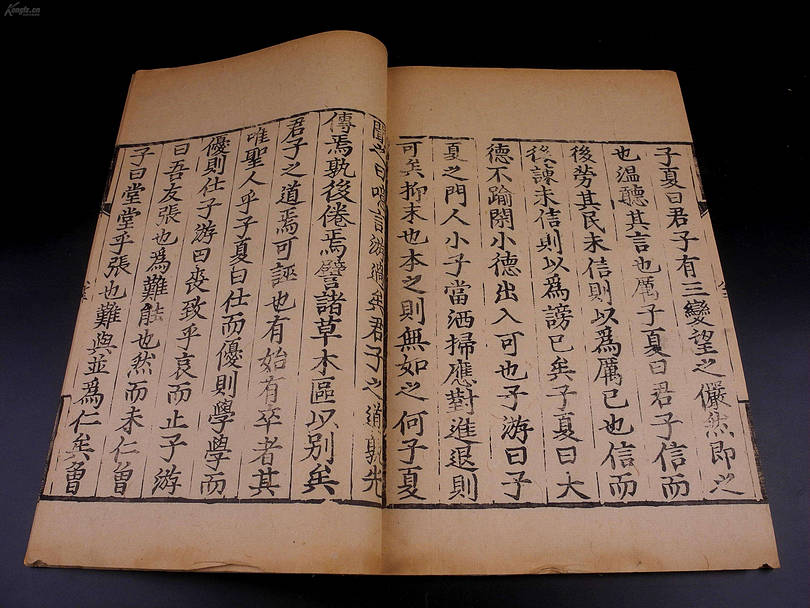 子夏曰君子有三變望之儼然即之
也溫聽其言也厲子夏曰君子信而
後勞其民未信則以爲厲已也信而
後諫未信則以爲謗已矣子夏曰大
德不踰閑小德出入可也子游曰子
夏之門人小子當洒掃應對進退則
可矣抑末也本之則無如之何子夏
聞之曰噫言游過矣君子之道孰先
傳焉孰後倦焉譬諸草木區以別矣
君子之道焉可誣也有始有卒者其
唯聖人乎子夏曰仕而優則學學而
優則仕子游曰喪致乎哀而止子游
曰吾友張也為難能也然而未仁曾
子曰堂堂乎張也難與並爲仁矣曾
Kongfz.cn